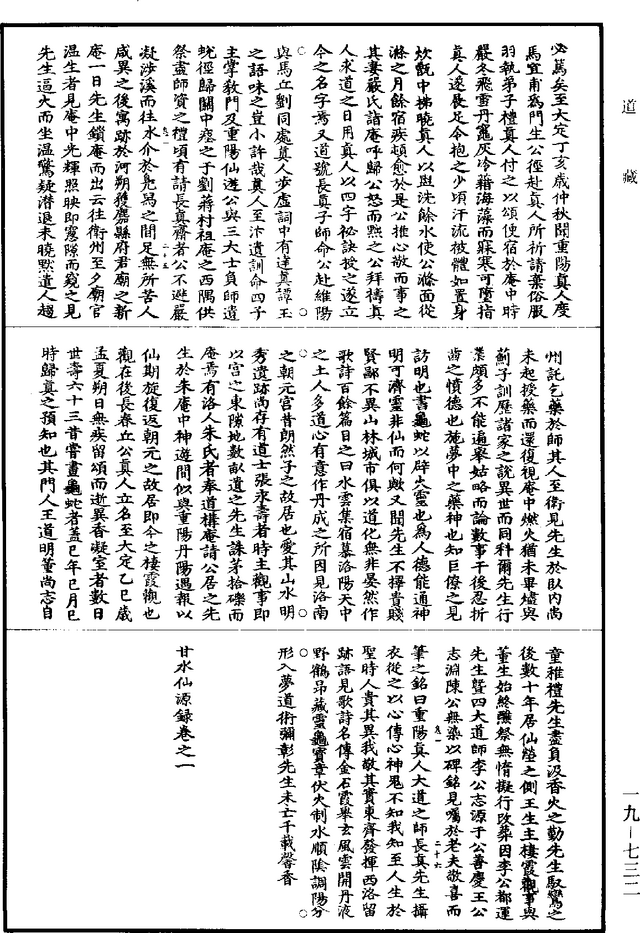 道藏
必篤矣至大定丁亥歲仲秋聞重陽真人度
馬宜甫爲門生公徑赴真人所祈請棄俗服
羽執弟子禮真人付之以頌使宿於庵中時
嚴冬飛雪丹竈灰冷藉海藻而寐寒可墮指
真人遂展足令抱之少頃汗流被體如置身
炊甑中拂曉真人以盥洗餘水使公滌面從
滌之月餘宿疾頓愈於是公推心敬而事之
其妻嚴氏詣庵呼歸公怒而黜之公拜禱真
人求道之日用真人以四字祕訣授之遂立
今之名字焉又道號長真子師命公赴維陽
與馬丘劉同處真人步虛詞中有達真譚玉
之語味之豈小許哉真人至汴遺訓命四子
主掌教門及重陽仙遊公與三大士負師遺
蛻徑歸關中瘞之于劉蔣村祖庵之西隅供
祭盡師資之禮頃有請長真齋者公不避嚴
凝涉溪而往水介於凫舄之間足無所苦人
咸異之後寓跡於河朔獲鹿縣府君廟之新
庵一日先生鎖庵而出云往衛州至夕廟官
溫生者見庵中光輝照映即窻隙而窺之見
先生逼火而坐溫驚疑潛退未曉黙遣人趨
州託乞藥於師其人至衛見先生於臥内尚
未起授藥而還復視庵中燃火猶未畢燼與
薊子訓歷諸家之說異世而同科爾先生行
業頗多不能遍舉姑略而論數事于後忍折
齒之憤德也施夢中之藥神也知巨僚之見
訪明也書龜蛇以辟火靈也爲人德能通神
明可濟靈非仙而何歟又聞先生不擇貴賤
賢鄙不異山林城市俱以道化無非晏然作
歌詩百餘篇目之曰水雲集宿慕洛陽天中
之土人多道心有意作丹成之所因見洛南
之朝元宮昔朗然子之故居也愛其山水明
秀遺跡尚存有道士張永壽者時主觀事即
以宮之東隙地數畝遺之先生誅茅拾礫而
庵焉有洛人朱氏者奉道構庵請公居之先
生於朱庵中神遊間似與重陽丹陽遇報以
仙期旋復返朝元之故居即今之棲霞觀也
觀在後長春丘公真人立名至大定乙巳歲
孟夏朔日無疾留頌而逝異香凝室者數日
世壽六十三昔嘗畫龜蛇者蓋巳年巳月巳
時歸真之預知也其門人王道明董尚志自
童稚禮先生盡負汲香火之勤先生馭鸞之
後數十年居仙塋之側王生主棲霞觀事與
董生始終醮祭無惰擬行改葬因李公都運
先生暨四大道師李公志源于公善慶王公
志淵陳公無染以碑銘見囑於老夫敬喜而
筆之銘曰重陽真人大道之師長真先生攝
衣從之以心傳心神鬼不知我知至人生於
聖時人貴其異我敬其實東齊發揮西洛留
跡語見歌詩名傳金石霞舉玄風雲開丹液
野鶴昂藏靈龜寶章伏火制水順陰調陽分
形入夢道術彌彰先生未亡千載馨香
甘水仙源録卷之一
一九—七三二